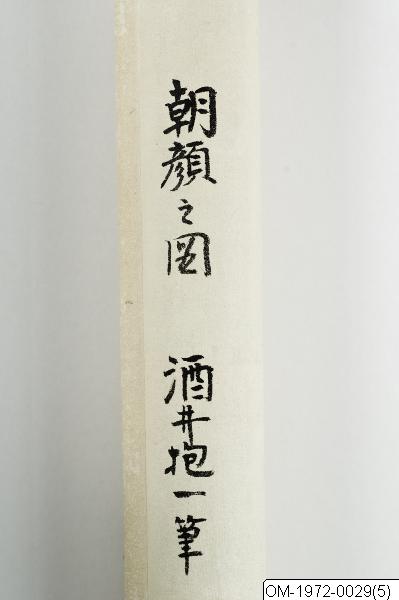 朝顔之図 酒井抱一筆
OM-1972-0029(5)